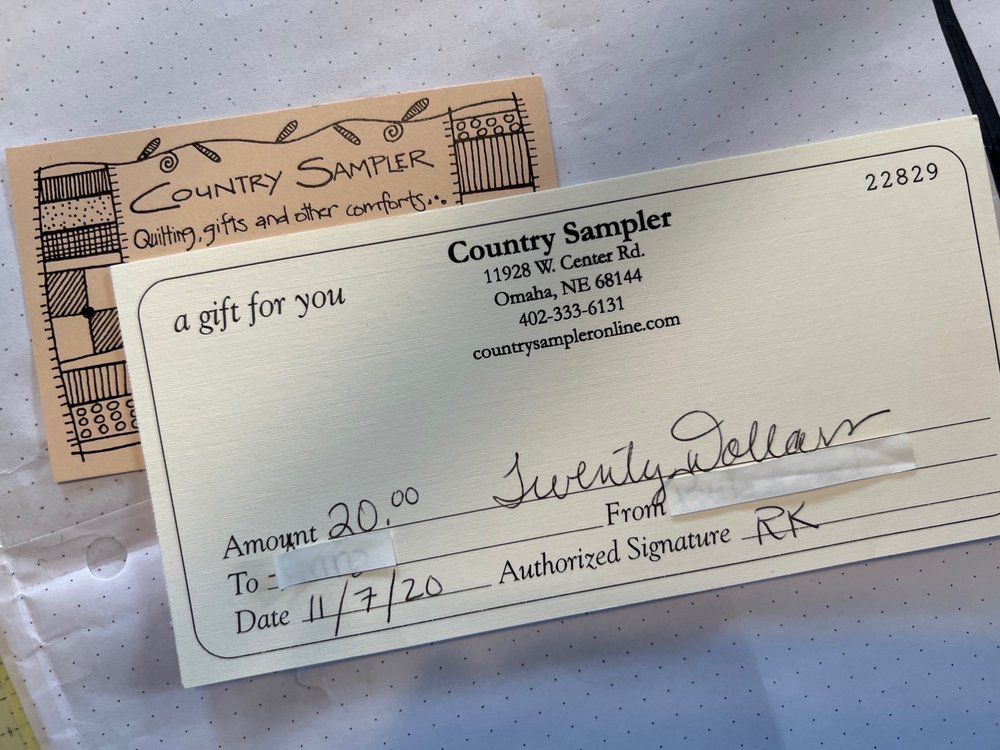 COUNTRY SAMPLER
Quilting, gifts and other comforts...
22829
Country Sampler
11928 W. Center Rd.
Omaha, NE 68144
402-333-6131
countrysampleronline.com
a gift for you
Amount 20.00 Twenty Dollars
To From
Date 11/7/20 Authorized Signature RK